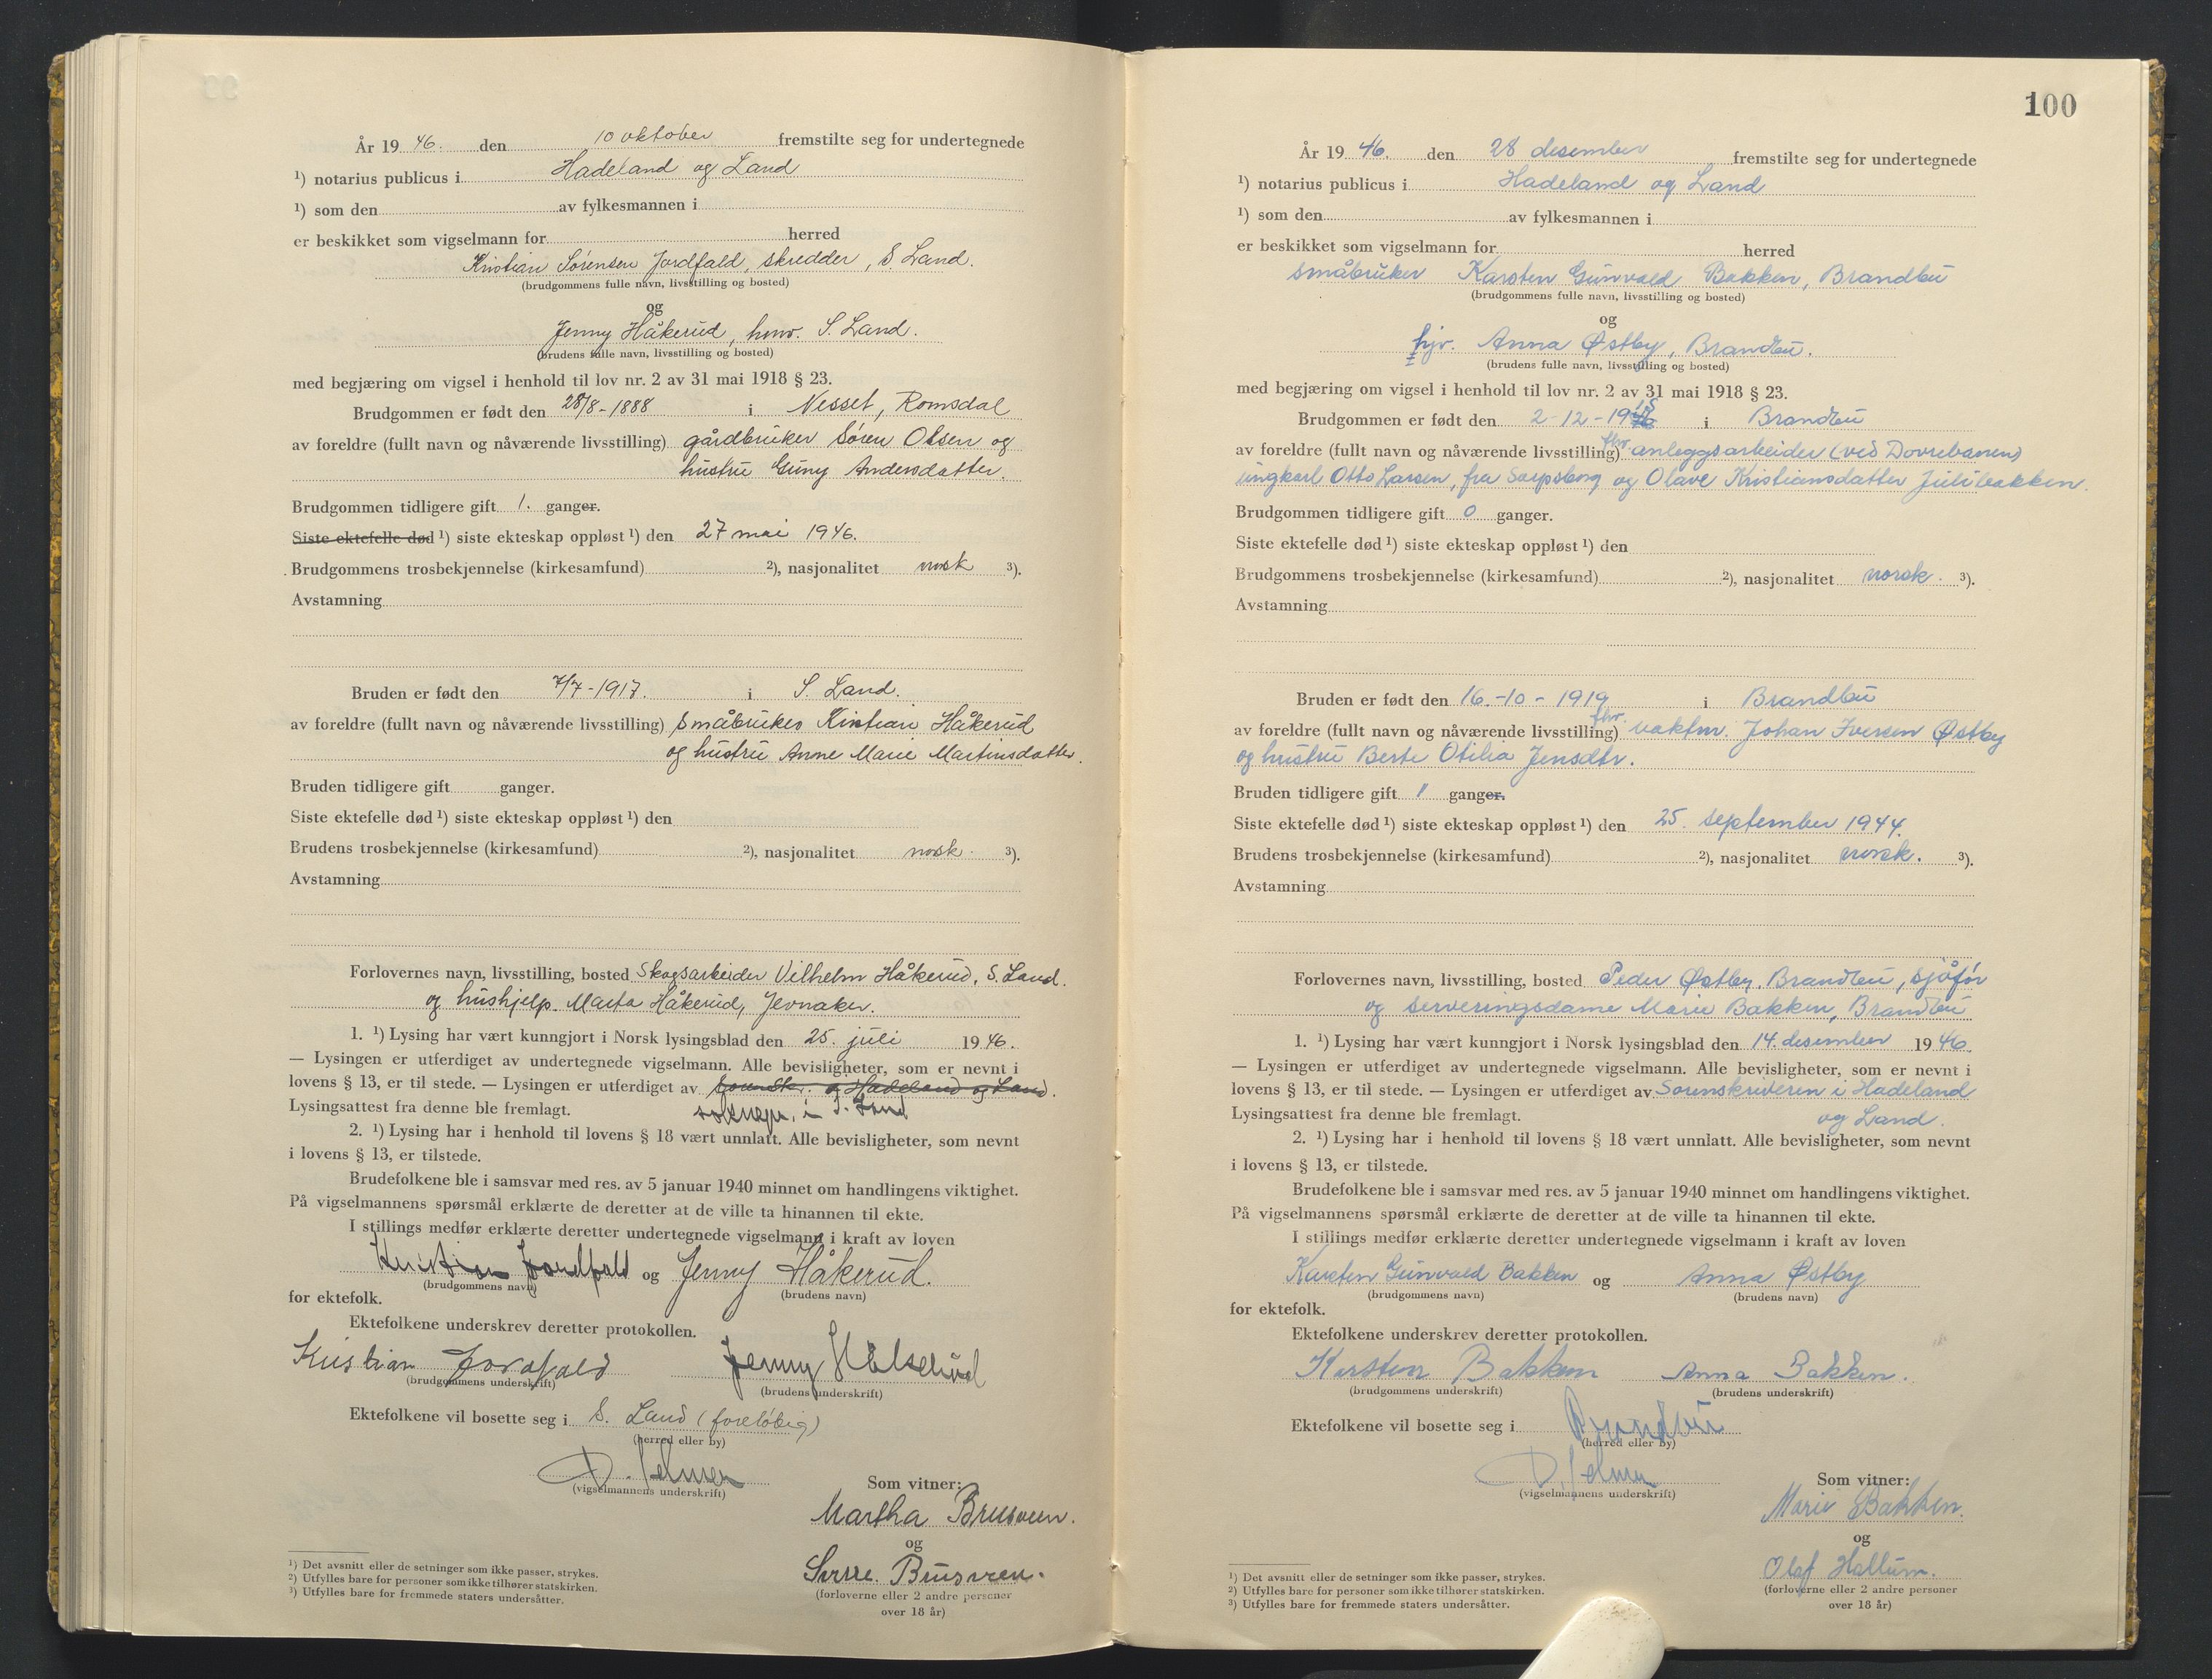 År 19 46. den 10 oktober fremstilte seg for undertegnede
¹) notarius publicus i Hadeland og Land
¹) som den av fylkesmannen i
er beskikket som vigselmann for herred
Kristian Sørensen Jordfald, skredder, S. Land.
(brudgommens fulle navn, livsstilling og bosted)
og
Jenny Håkerud, S. Land.
(brudens fulle navn, livsstilling og bosted)
med begjæring om vigsel i henhold til lov nr. 2 av 31 mai 1918 § 23.
Brudgommen er født den 28/8-1888 i Nesset, Romsdal
av foreldre (fullt navn og nåværende livsstilling) gårdbruker Søren Olsen og
hustru Guny Andersdatter.
Brudgommen tidligere gift 1. ganger.
Siste ektefelle død ¹) siste ekteskap oppløst ¹) den 27 mai 1946.
Brudgommens trosbekjennelse (kirkesamfund) ²), nasjonalitet norsk ³).
Avstamning
Bruden er født den 7/7-1917. i S. Land.
av foreldre (fullt navn og nåværende livsstilling) småbruker Kristian Håkerud
og hustru Anne Marie Martinsdatter.
Bruden tidligere gift ganger.
Siste ektefelle død ¹) siste ekteskap oppløst ¹) den
Brudens trosbekjennelse (kirkesamfund) ²), nasjonalitet norsk. ³).
Avstamning
Forlovernes navn, livsstilling, bosted Skogsarbeider Vilhelm Håkerud, S. Land.
og hushjelp Marta Håkerud, Jevnaker.
1. ¹) Lysing har vært kunngjort i Norsk lysingsblad den 25. juli 19 46.
— Lysingen er utferdiget av undertegnede vigselmann. Alle bevisligheter, som er nevnt i
lovens § 13, er til stede. — Lysingen er utferdiget av sorenskr. og Hadeland og Land.
Lysingsattest fra denne ble fremlagt. soknepr. i S. Land
2. ¹) Lysing har i henhold til lovens § 18 vært unnlatt. Alle bevisligheter, som nevnt
i lovens § 13, er tilstede.
Brudefolkene ble i samsvar med res. av 5 januar 1940 minnet om handlingens viktighet.
På vigselmannens spørsmål erklærte de deretter at de ville ta hinannen til ekte.
I stillings medfør erklærte deretter undertegnede vigselmann i kraft av loven
Kristian Jordfald og Jenny Håkerud.
(brudgommens navn) (brudens navn)
for ektefolk.
Ektefolkene underskrev deretter protokollen.
Kristian Jordfald Jenny Håkerud
(brudgommens underskrift) (brudens underskrift)
Ektefolkene vil bosette seg i S. Land (foreløbig)
(herred eller by)
(vigselmannens underskrift)
Som vitner:
Martha Brusveen.
og
Sverre Brusveen.
(forloverne eller 2 andre personer
over 18 år)
¹) Det avsnitt eller de setninger som ikke passer, strykes.
²) Utfylles bare for personer som ikke tilhører statskirken.
³) Utfylles bare for fremmede staters undersåtter.
100
År 19 46. den 28 desember fremstilte seg for undertegnede
¹) notarius publicus i Hadeland og Land
¹) som den av fylkesmannen i
er beskikket som vigselmann for herred
småbruker Karsten Gunvald Bakken, Brandbu
(brudgommens fulle navn, livsstilling og bosted)
og
Anna Østby, Brandbu.
(brudens fulle navn, livsstilling og bosted)
med begjæring om vigsel i henhold til lov nr. 2 av 31 mai 1918 § 23.
Brudgommen er født den 2-12-1918 i Brandbu
av foreldre (fullt navn og nåværende livsstilling) fhv. anleggsarbeider (ved Dovrebanen)
ungkarl Otto Larsen, fra Sarpsborg og Olave Kristiansdatter Julibakken.
Brudgommen tidligere gift 0 ganger.
Siste ektefelle død ¹) siste ekteskap oppløst ¹) den
Brudgommens trosbekjennelse (kirkesamfund) ²), nasjonalitet norsk. ³).
Avstamning
Bruden er født den 16.-10-1919 i Brandbu
av foreldre (fullt navn og nåværende livsstilling) fhv. vaktm. Johan Iversen Østby
og hustru Berte Otilia Jensdtr.
Bruden tidligere gift 1 ganger.
Siste ektefelle død ¹) siste ekteskap oppløst ¹) den 25. september 1944.
Brudens trosbekjennelse (kirkesamfund) ²), nasjonalitet norsk. ³).
Avstamning
Forlovernes navn, livsstilling, bosted Peder Østby, Brandbu, sjåfør
og serveringsdame Marie Bakken, Brandbu
1. ¹) Lysing har vært kunngjort i Norsk lysingsblad den 14. desember 19 46.
— Lysingen er utferdiget av undertegnede vigselmann. Alle bevisligheter, som er nevnt i
lovens § 13, er til stede. — Lysingen er utferdiget av Sorenskriveren i Hadeland
Lysingsattest fra denne ble fremlagt. og Land.
2. ¹) Lysing har i henhold til lovens § 18 vært unnlatt. Alle bevisligheter, som nevnt
i lovens § 13, er tilstede.
Brudefolkene ble i samsvar med res. av 5 januar 1940 minnet om handlingens viktighet.
På vigselmannens spørsmål erklærte de deretter at de ville ta hinannen til ekte.
I stillings medfør erklærte deretter undertegnede vigselmann i kraft av loven
Karsten Gunvald Bakken og Anna Østby
(brudgommens navn) (brudens navn)
for ektefolk.
Ektefolkene underskrev deretter protokollen.
Karsten Bakken Anna Bakken.
(brudgommens underskrift) (brudens underskrift)
Ektefolkene vil bosette seg i Brandbu
(herred eller by)
(vigselmannens underskrift)
Som vitner:
Marie Bakken.
og
Olaf Hallum.
(forloverne eller 2 andre personer
over 18 år)
¹) Det avsnitt eller de setninger som ikke passer, strykes.
²) Utfylles bare for personer som ikke tilhører statskirken.
³) Utfylles bare for fremmede staters undersåtter.